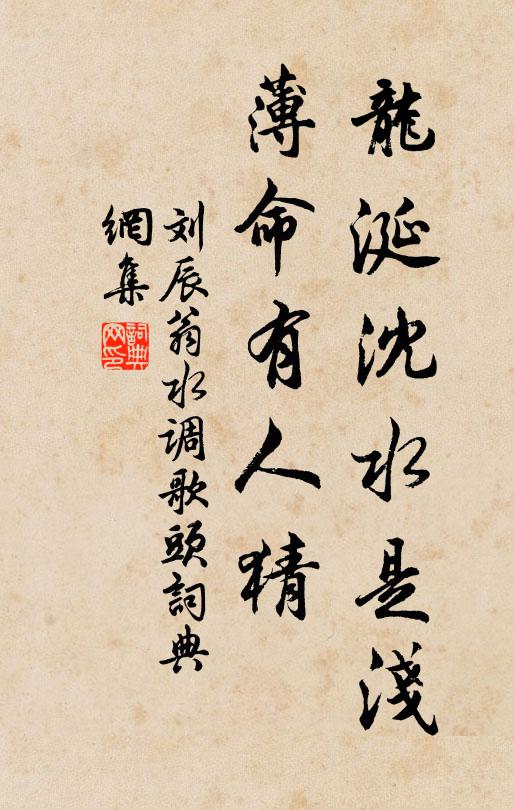 龍涎沈水是淺
薄命有人猜
刘辰翁水调歌頭詞典
網集
詞典
网印